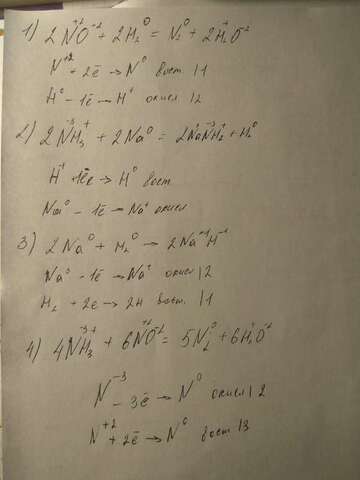 1) 2N⁺²O⁻² + 2H₂⁰ = N₂⁰ + 2H₂⁺O⁻²
N⁺² + 2ē → N⁰ восст |1
H⁰ - 1ē → H⁺ окисл |2
2) 2N⁻³H₃⁺ + 2Na⁰ = 2Na⁺N⁻³H₂⁺ + H₂⁰
H⁺ + 1ē → H⁰ восст
Na⁰ - 1ē → Na⁺ окисл
3) 2Na⁰ + H₂⁰ → 2Na⁺¹H⁻¹
Na⁰ - 1ē → Na⁺ окисл |2
H₂ + 2ē → 2H восст. |1
4) 4N⁻³H₃⁺ + 6N⁺²O⁻² = 5N₂⁰ + 6H₂⁺O⁻²
N⁻³ - 3ē → N⁰ окисл |2
N⁺² + 2ē → N⁰ восст |3